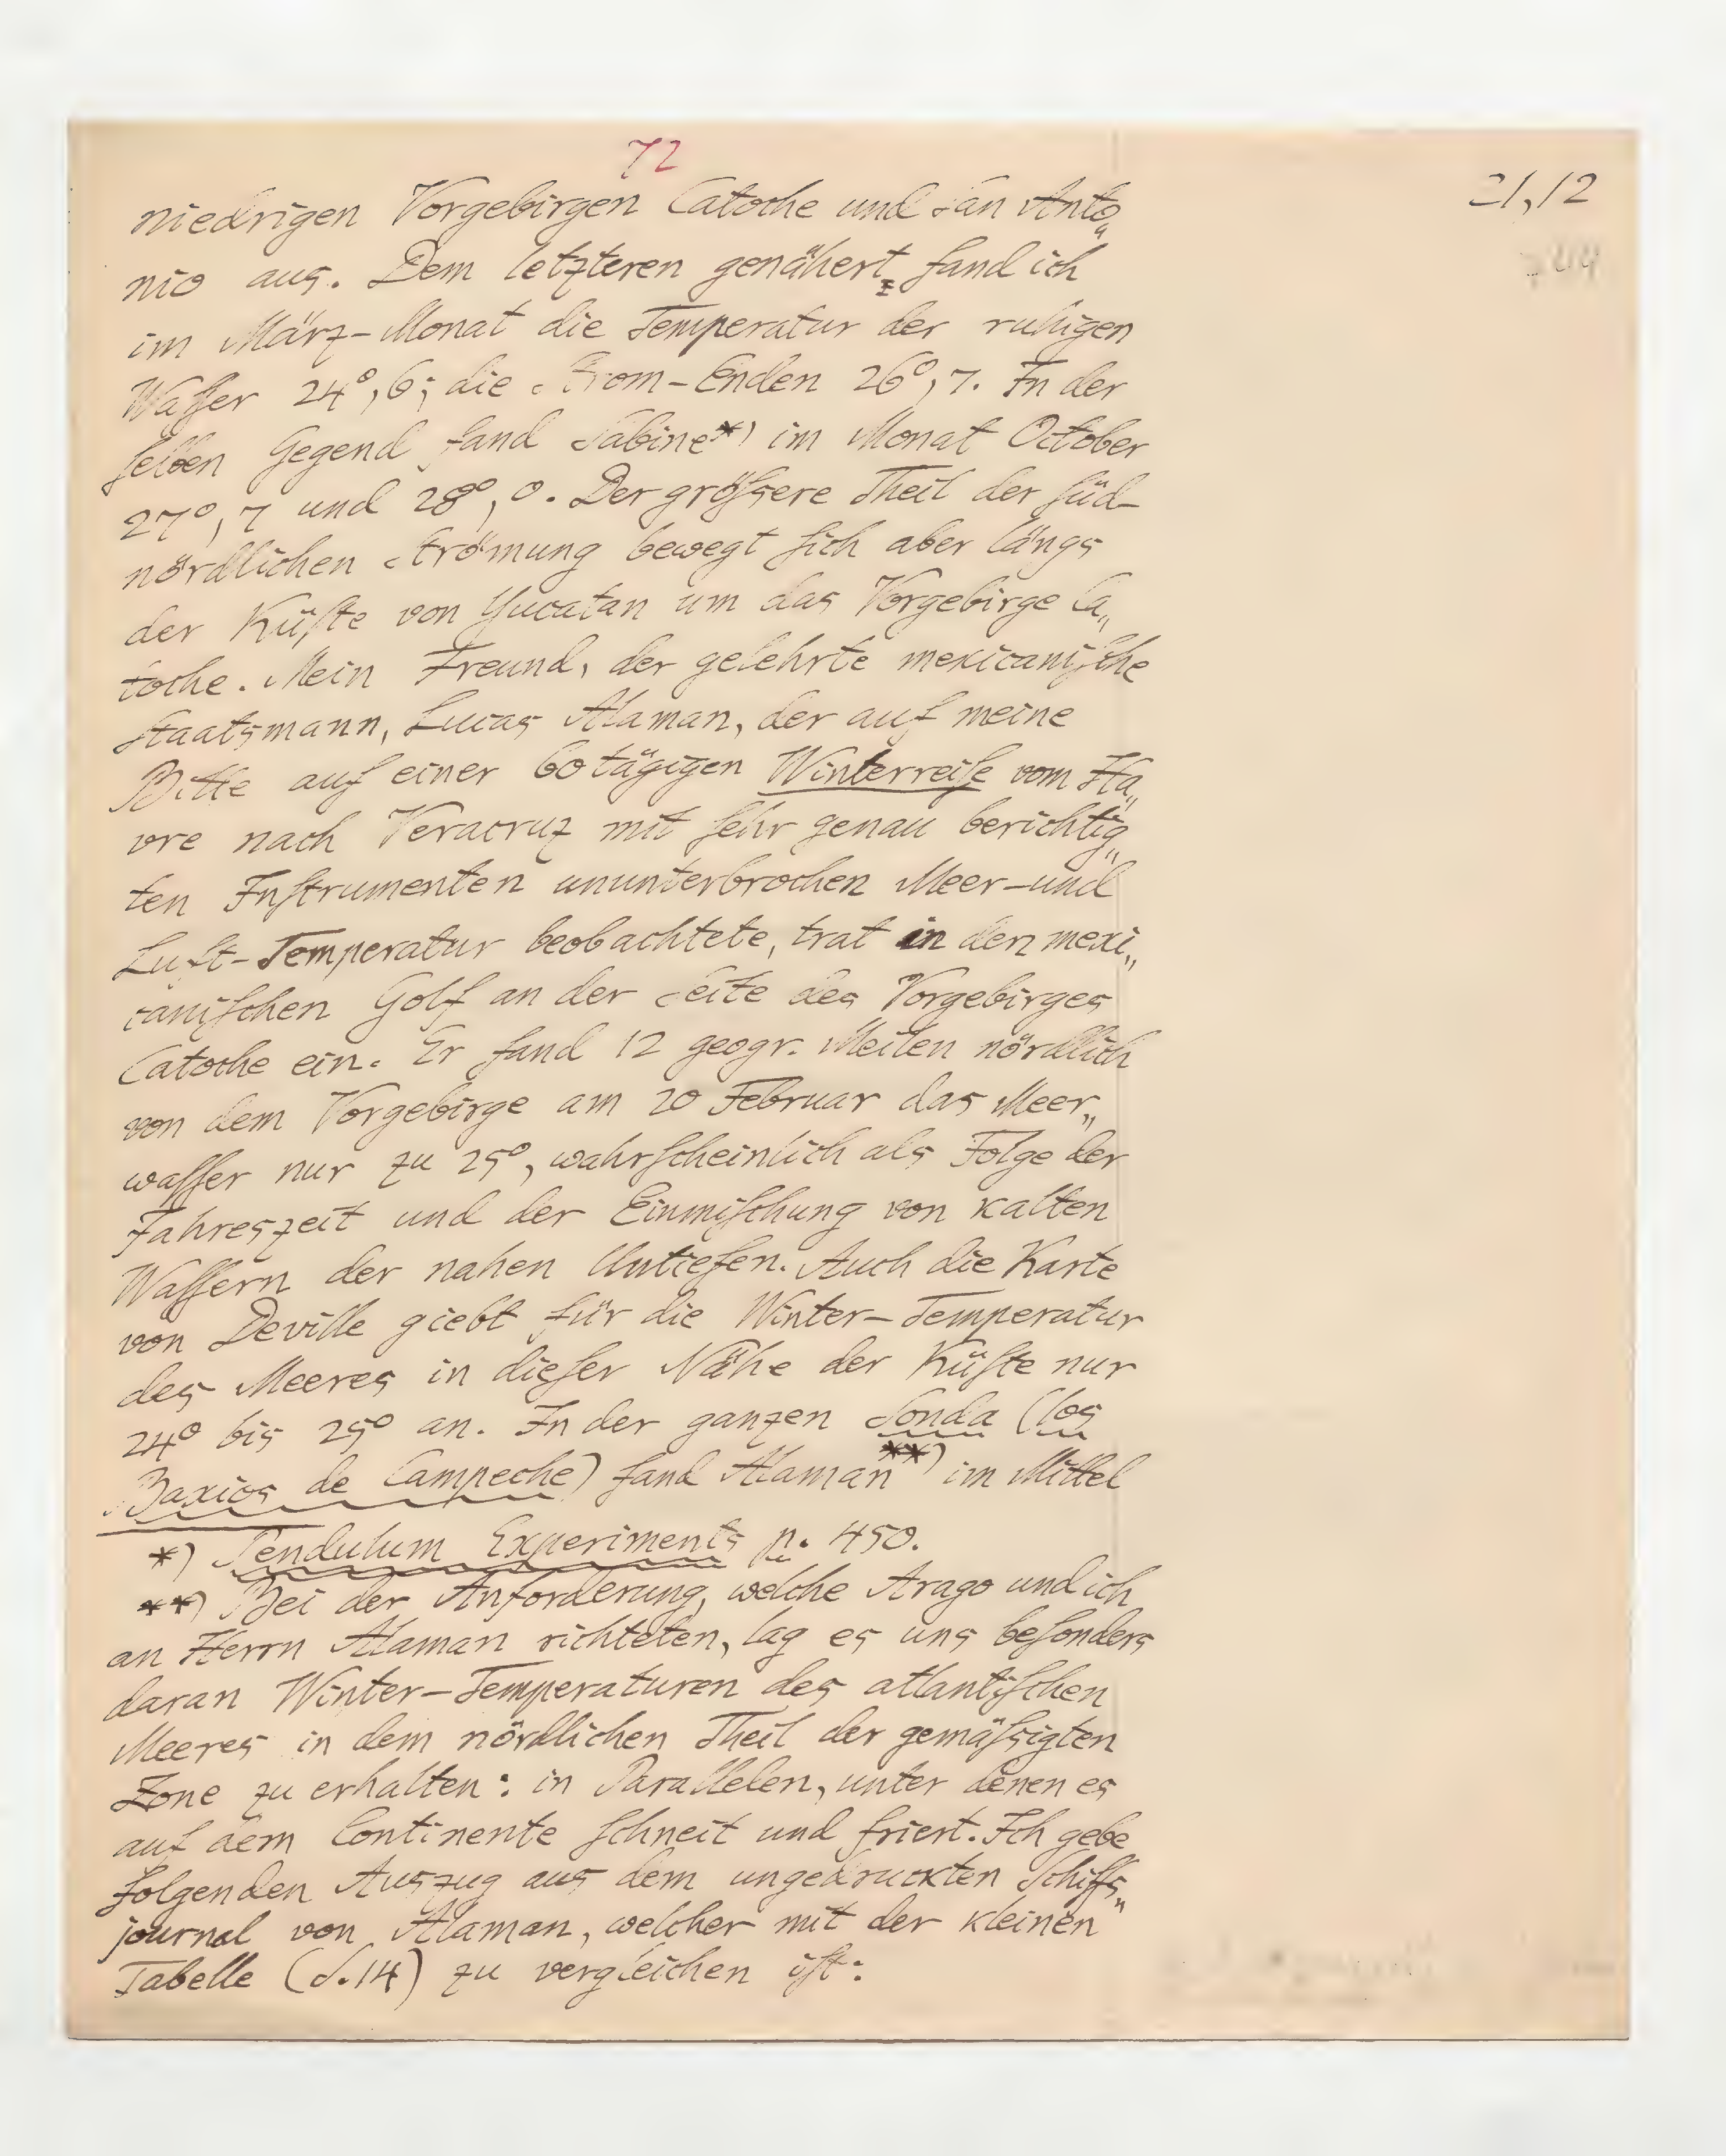 72
21,12
niedrigen Vorgebirgen Catoche und San Anto„
nio aus. Dem letzteren genähert, fand ich
im März-Monat die Temperatur der ruhigen
Waſſer 24°,6; die Strom-Enden 26°,7. In der
ſelben Gegend fand Sabine*) im Monat October
27°,7 und 28°,0. Der gröſsere Theil der ſüd-
nördlichen Strömung bewegt ſich aber längs
der Küſte von Yucatan um das Vorgebirge Ca„
toche. Mein Freund, der gelehrte mexicaniſche
Staatsmann, Lucas Alaman, der auf meine
Bitte auf einer 60 tägigen Winterreiſe vom Ha„
vre nach Veracruz mit ſehr genau berichtig„
ten Inſtrumenten ununterbrochen Meer-und
Luft-Temperatur beobachtete, trat in den mexi„
caniſchen Golf an der Seite des Vorgebirges
Catoche ein. Er fand 12 geogr. Meilen nördlich
von dem Vorgebirge am 20 Februar das Meer„
waſſer nur zu 25°, wahrſcheinlich als Folge der
Jahreszeit und der Einmiſchung von kalten
Waſſern der nahen Untiefen. Auch die Karte
von Deville giebt für die Winter-Temperatur
des Meeres in dieſer Nähe der Küſte nur
24° bis 25° an. In der ganzen Sonda (los
Baxios de Campeche) fand Alaman**) im Mittel
*) Pendulum Experiments p. 450.
**) Bei der Anforderung, welche Arago und ich
an Herrn Alaman richteten, lag es uns beſonders
daran Winter-Temperaturen des atlantiſchen
Meeres in dem nördlichen Theil der gemäſsigten
Zone zu erhalten: in Parallelen, unter denen es
auf dem Continente ſchneit und friert. Ich gebe
folgenden Auszug aus dem ungedruckten Schiffs„
journal von Alaman, welcher mit der kleinen
Tabelle (S.14) zu vergleichen iſt: